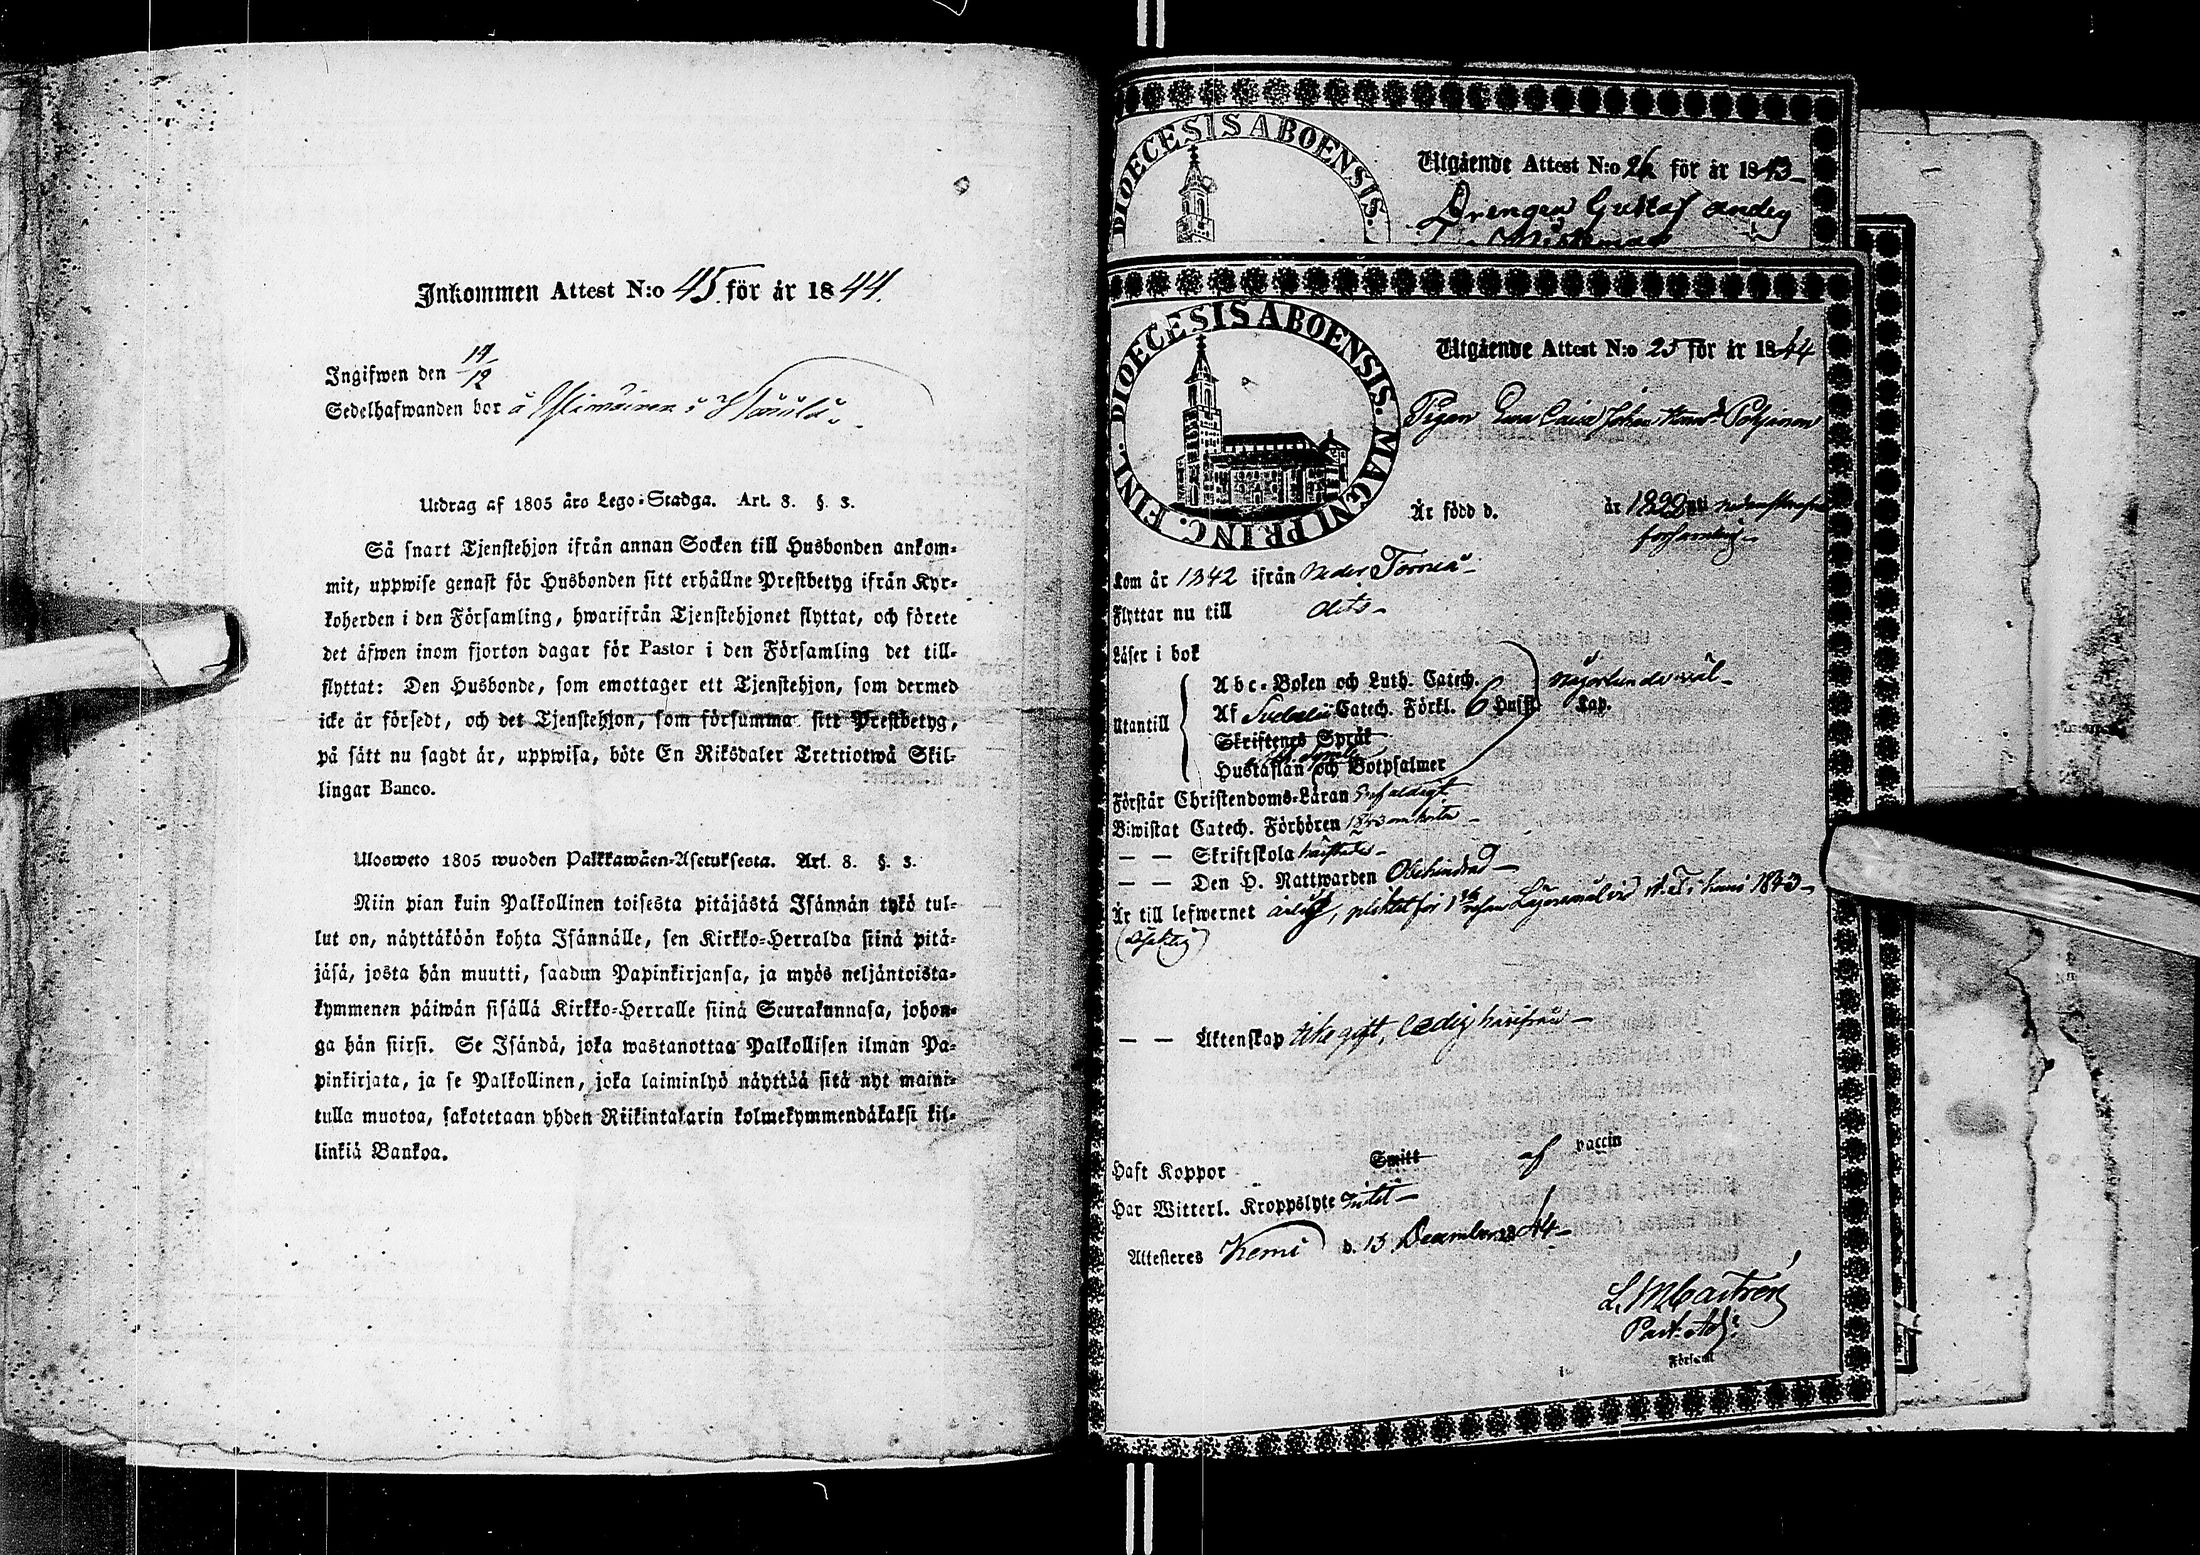 Inkommen Attest N:o 45. för år 1844.
Ingifwen den 17/12
Sedelhafwanden bor å
Utdrag af 1805 års Lego-Stadga. Art. 8. §. 3.
Så snart Tjenstehjon ifrån annan Socken till Husbonden ankom-
mit, uppwise genast för Husbonden sitt erhållne Prestbetyg ifrån Kyr-
koherden i den Församling, hwarifrån Tjenstehjonet flyttat, och förete
det äfwen inom fjorton dagar för Pastor i den Församling det till-
flyttat: Den Husbonde, som emottager ett Tjenstehjon, som dermed
icke är försedt, och det Tjenstehjon, som försumma sitt Prestbetyg,
på sätt nu sagdt är, uppwisa, böte En Riksdaler Trettiotwå Skil-
lingar Banco.
Ulosweto 1805 wuoden Palkkawäen-Asetuksesta. Art. 8. §. 3.
Niin pian kuin Palkollinen toisesta pitäjästä Isännän tykö tul-
lut on, näyttäköön kohta Isännälle, sen Kirkko-Herralda siinä pitä-
jäsä, josta hän muutti, saadun Papinkirjansa, ja myös neljäntoista-
kymmenen päiwän sisällä Kirkko-Herralle siinä Seurakunnasa, johon-
ga hän siirsi. Se Isändä, joka wastanottaa Palkollisen ilman Pa-
pinkirjata, ja se Palkollinen, joka laiminlyö näyttää sitä nyt maini-
tulla muotoa, sakotetaan yhden Riikintalarin kolmekymmendäkaksi kil-
linkiä Bankoa.
DIOECESIS ABOENSIS.
Utgående Attest N:o 26 för år 1843
Drengen Gustaf
FINL. DIOECESIS ABOENSIS. MAGNI PRINC.
Utgående Attest N:o 25 för år 1844
Pigan Eva Caisa Johan Pohjanen
Är född d. år 1822 uti
församling
Kom år 1842 ifrån Neder Torneå
Flyttar nu till dito
Läser i bok
Utantill
Abc-Boken och Luth. Catech. någorlunda wäl
Af Catech. Förkl. 6 Hufst. Kap.
Skriftenes Språk
Hustaflan och Botpsalmer
Förstår Christendoms-Läran enfaldigt
Biwistat Catech. Förhören 1843
— — Skriftskola
— — Den H. Nattwarden Obehindrad
Är till lefwernet ärlig, pliktat för 1843
— — Äktenskap icke gift, Ledig härifrån
Haft Koppor Smitt af vaccin
Har Witterl. Kroppslyte Intet
Attesteres Kemi d. 13 December 1844
L. M. Castrén
Past. Adj.
Församl